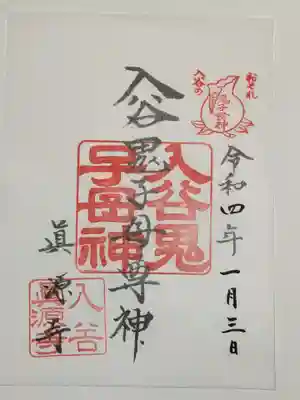 恐れ
入谷の
鬼子母神
令和四年一月三日
入谷鬼子母尊神
入谷鬼
子母神
眞源寺
入谷
眞源寺